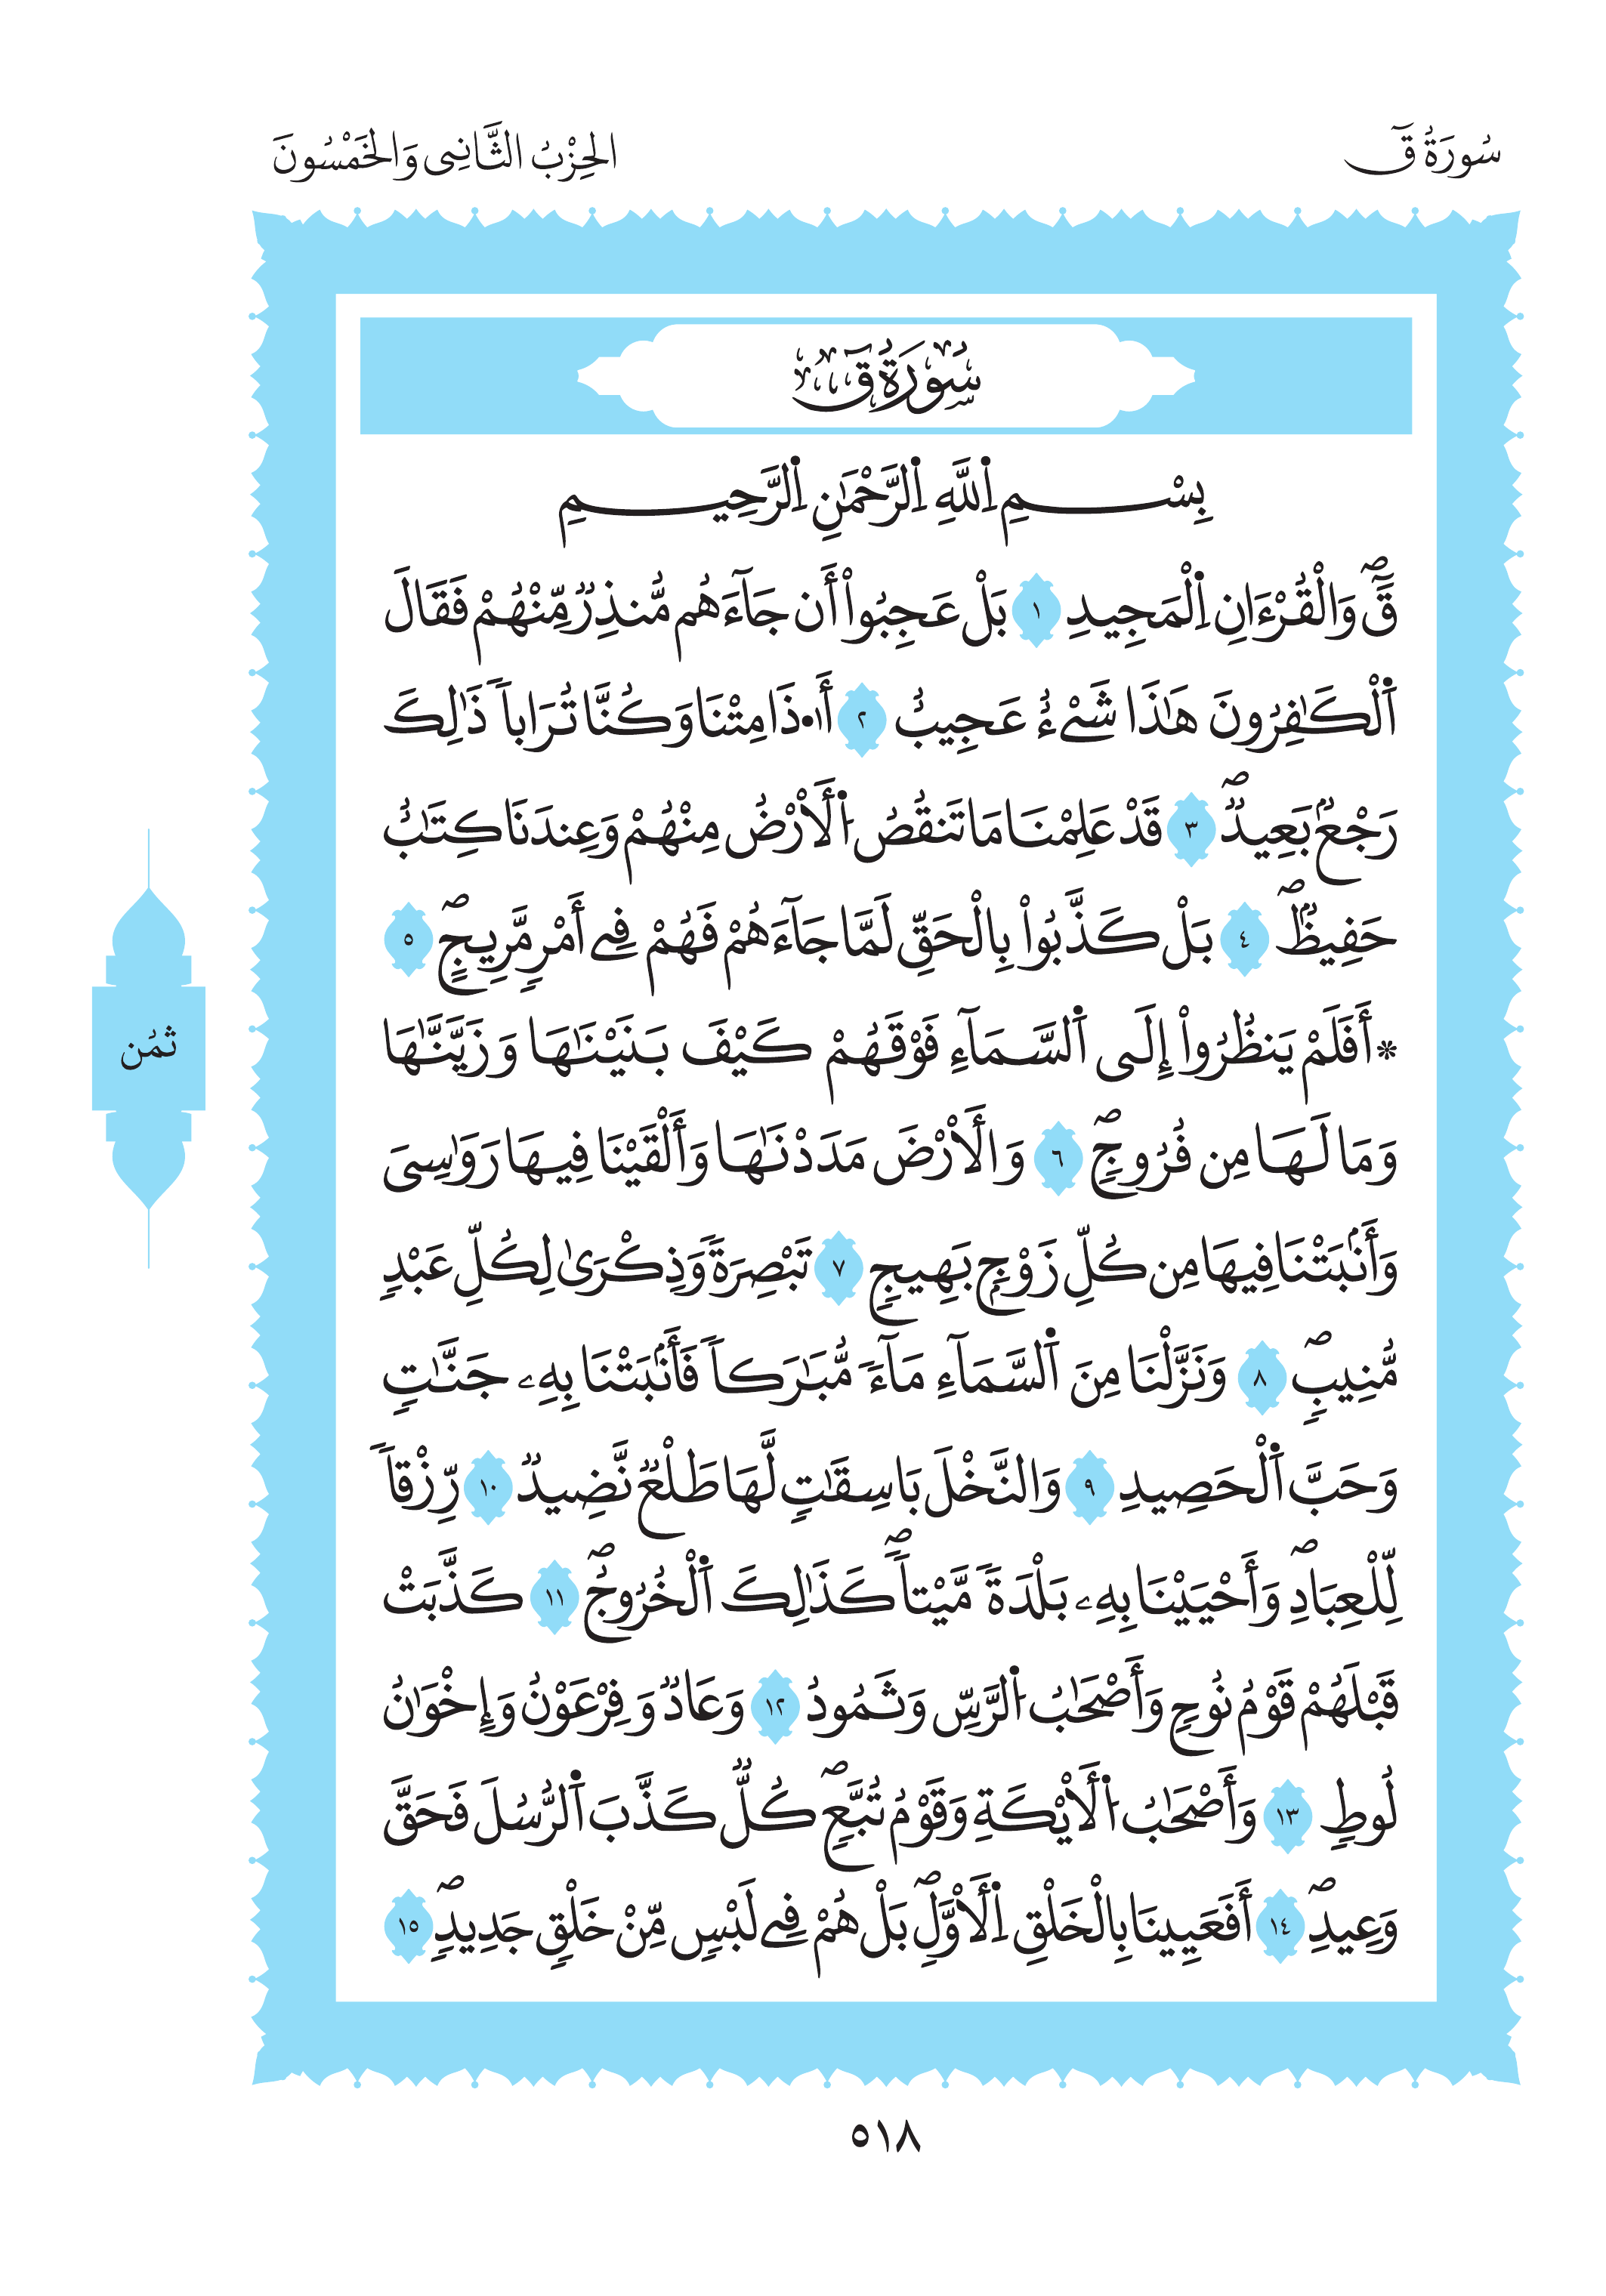 سُورَةُ قٓ
الحِزْبُ الثَّانِى وَالخَمْسُونَ
سُورَةُ قٓ
بِسْمِ اِ۬للَّهِ اِ۬لرَّحْمَٰنِ اِ۬لرَّحِيمِ
قَٓۖ وَالْقُرْءَانِ اِ۬لْمَجِيدِ ١ بَلْ عَجِبُوٓاْ أَن جَآءَهُم مُّنذِرٞ مِّنْهُمْ فَقَالَ
اَ۬لْكَٰفِرُونَ هَٰذَا شَےْءٌ عَجِيبٌ ٢ أَ.ٰذَا مِتْنَا وَكُنَّا تُرَاباٗ ذَٰلِكَ
رَجْعُۢ بَعِيدٞۖ ٣ قَدْ عَلِمْنَا مَا تَنقُصُ اُ۬لَارْضُ مِنْهُمْ وَعِندَنَا كِتَٰبٌ
حَفِيظُۢۖ ٤ بَلْ كَذَّبُواْ بِالْحَقِّ لَمَّا جَآءَهُمْ فَهُمْ فِے أَمْرٖ مَّرِيجٍۖ ٥
* أَفَلَمْ يَنظُرُوٓاْ إِلَى اَ۬لسَّمَآءِ فَوْقَهُمْ كَيْفَ بَنَيْنَٰهَا وَزَيَّنَّٰهَا
وَمَا لَهَا مِن فُرُوجٖۖ ٦ وَالَارْضَ مَدَدْنَٰهَا وَأَلْقَيْنَا فِيهَا رَوَٰسِىَ
وَأَنۢبَتْنَا فِيهَا مِن كُلِّ زَوْجِۢ بَهِيجٖ ٧ تَبْصِرَةٗ وَذِكْرَىٰ لِكُلِّ عَبْدٖ
مُّنِيبٖۖ ٨ وَنَزَّلْنَا مِنَ اَ۬لسَّمَآءِ مَآءٗ مُّبَٰرَكاٗ فَأَنۢبَتْنَا بِهِۦ جَنَّٰتٖ
وَحَبَّ اَ۬لْحَصِيدِ ٩ وَالنَّخْلَ بَاسِقَٰتٖ لَّهَا طَلْعٞ نَّضِيدٞ ١٠ رِّزْقاٗ
لِّلْعِبَادِۖ وَأَحْيَيْنَا بِهِۦ بَلْدَةٗ مَّيْتاٗۖ كَذَٰلِكَ اَ۬لْخُرُوجُۖ ١١ كَذَّبَتْ
قَبْلَهُمْ قَوْمُ نُوحٖ وَأَصْحَٰبُ اُ۬لرَّسِّ وَثَمُودُ ١٢ وَعَادٞ وَفِرْعَوْنُ وَإِخْوَٰنُ
لُوطٖ ١٣ وَأَصْحَٰبُ اُ۬لَايْكَةِ وَقَوْمُ تُبَّعٖۖ كُلّٞ كَذَّبَ اَ۬لرُّسُلَ فَحَقَّ
وَعِيدِۖ ١٤ أَفَعَيِينَا بِالْخَلْقِ اِ۬لَاوَّلِۖ بَلْ هُمْ فِے لَبْسٖ مِّنْ خَلْقٖ جَدِيدٖۖ ١٥
ثُمُن
٥١٨